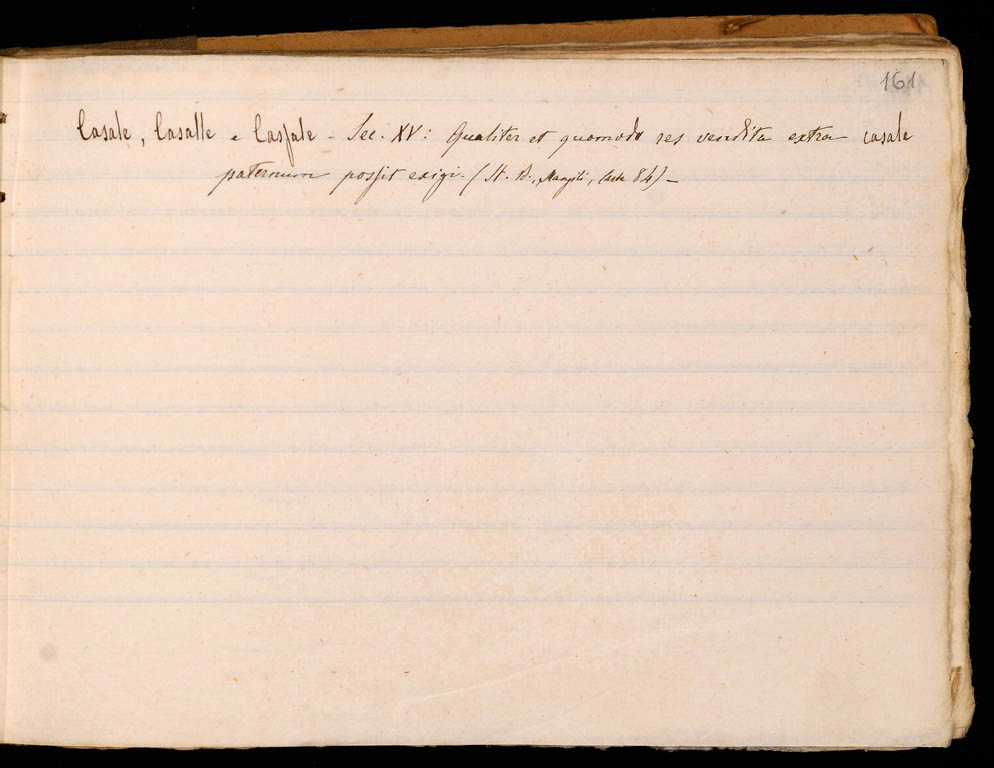 161
Casale, Casalle e Casſale - Sec. XV: Qualiter et quomodo res vendita extra casale
paternum poſsit exigi. (St. B., Mazzili, 84)_